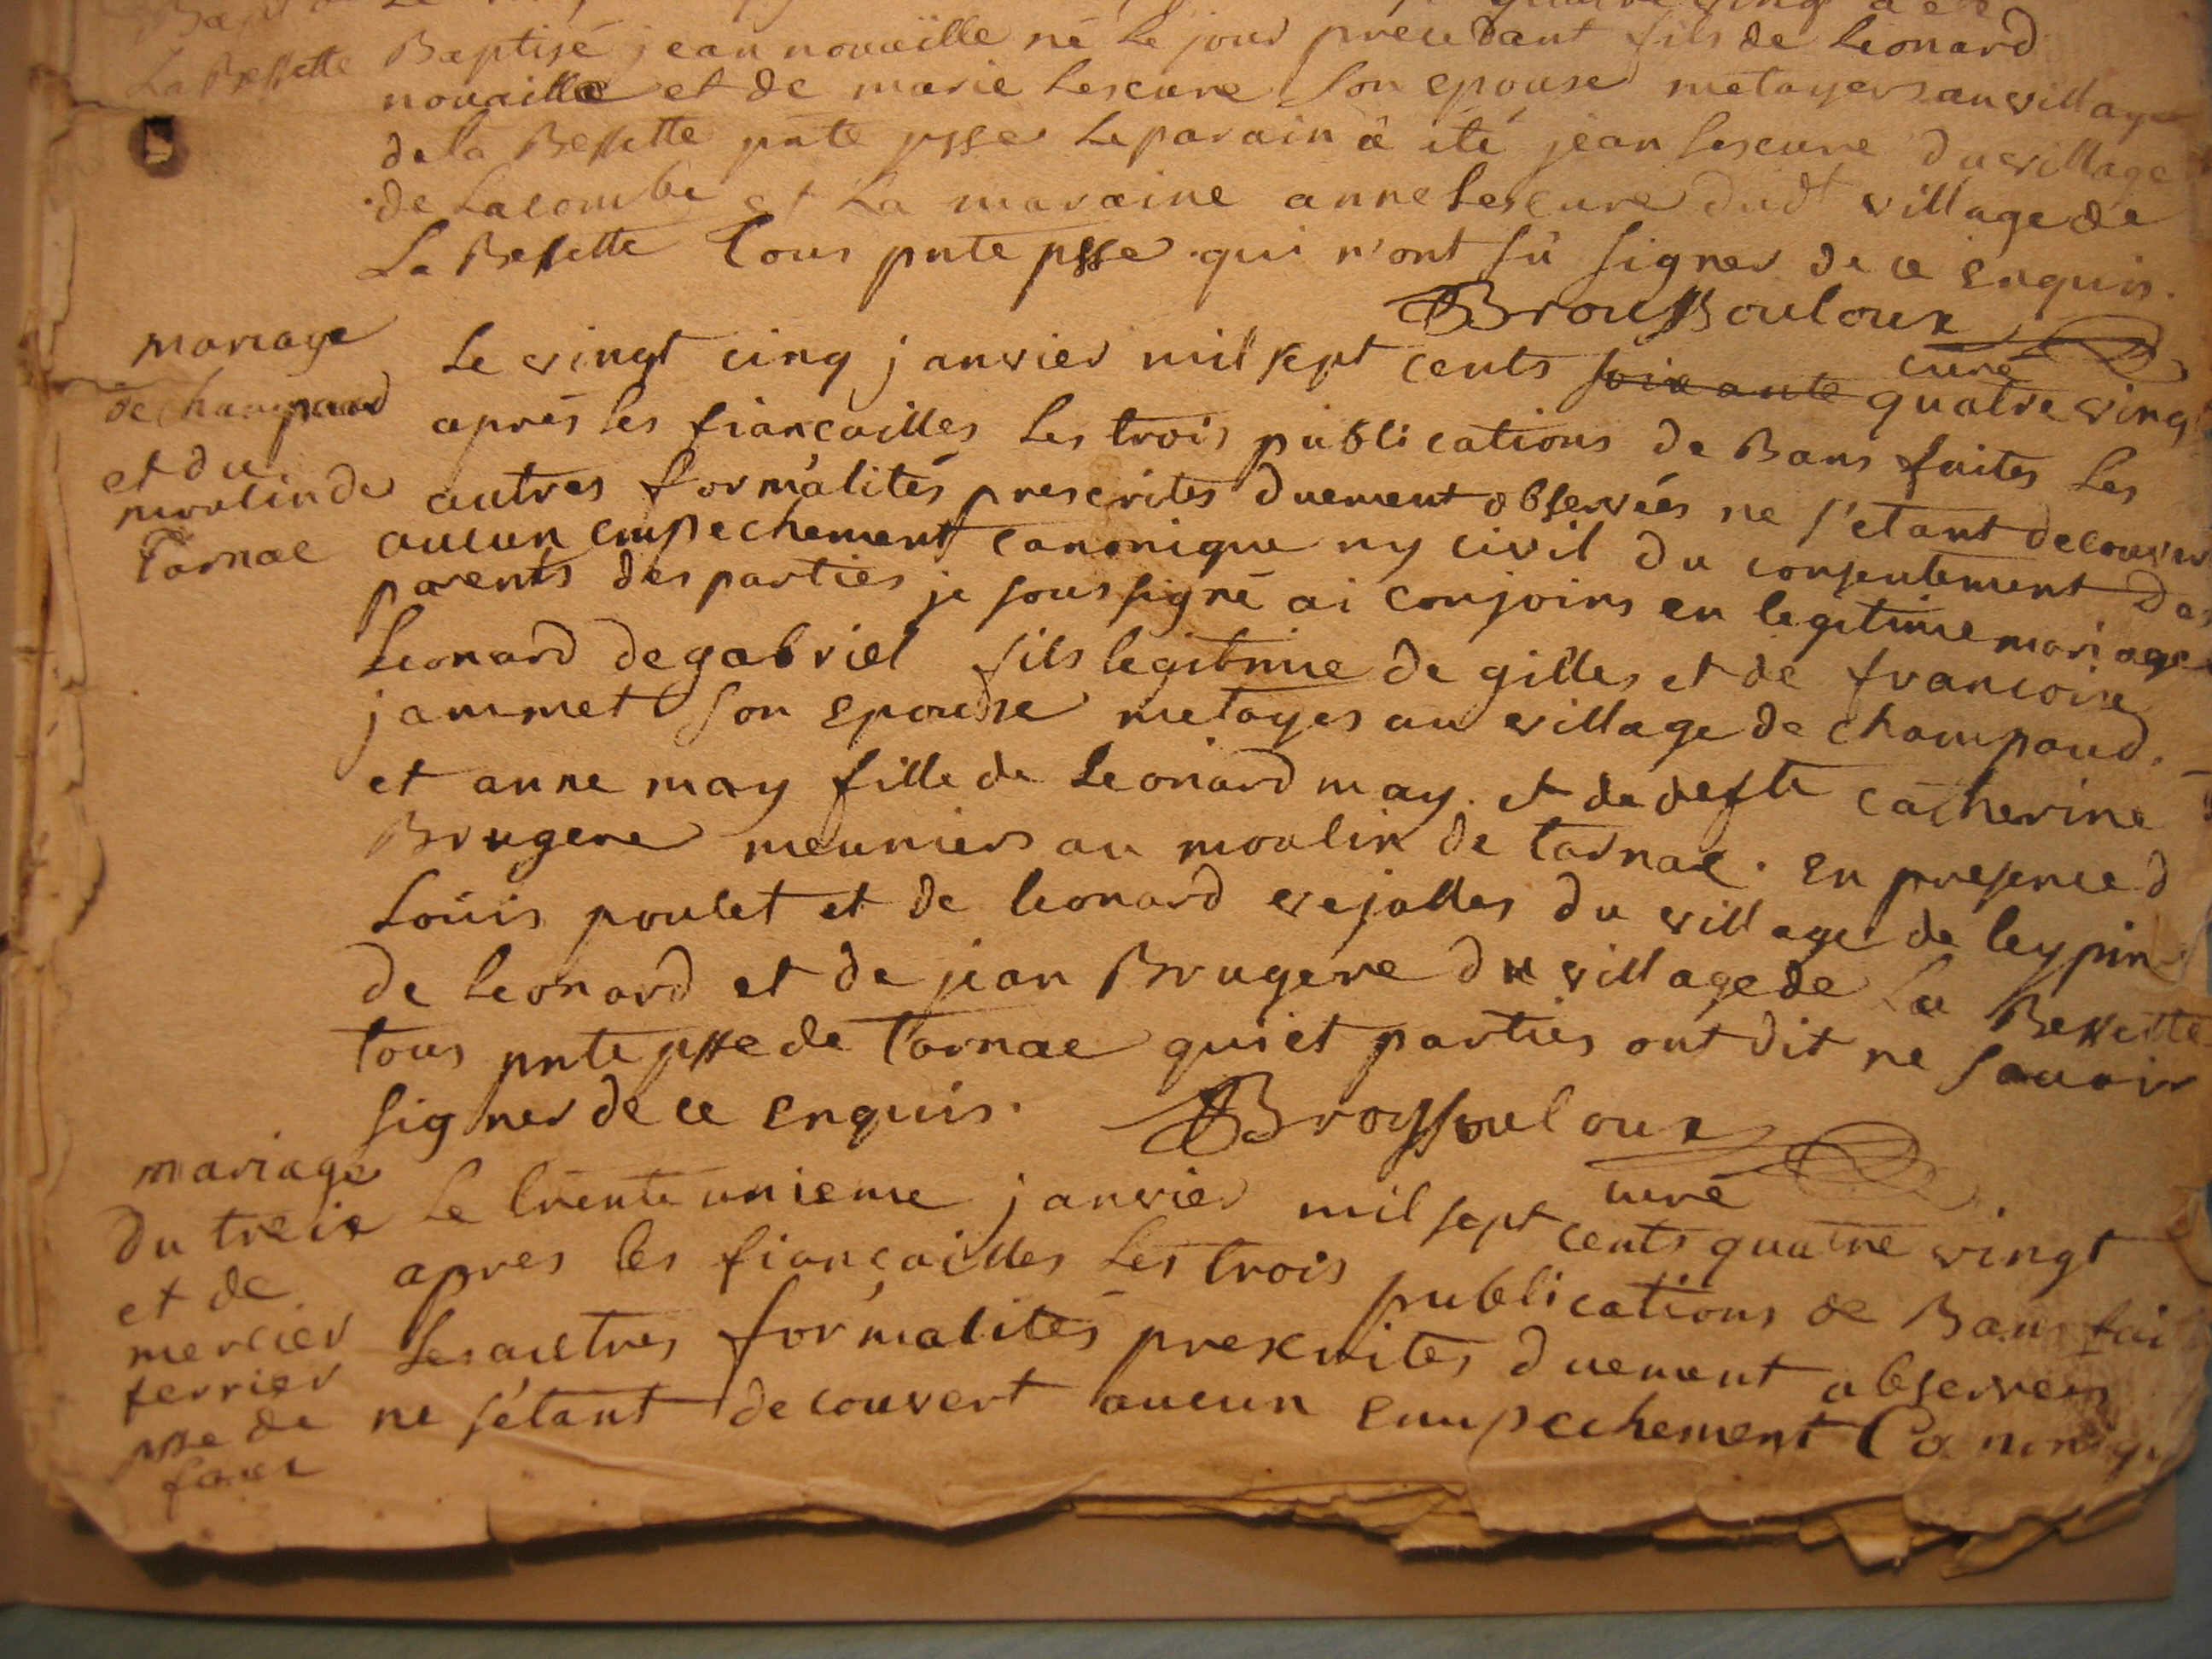 La Bessette
Baptisé jean nouaille né le jour precedant fils de Leonard
nouaille et de marie Lescure son epouse metayers au village
de la Bessette pnte psse Le parain a été jean Lescure du village
de Lacombe et La maraine anne Lescure dudt village de
La Bessette tous pnte psse qui n'ont sû signer de ce enquis.
BrousBouloux
curé
mariage
de champaud
et du
moulin de
Tarnac
Le vingt cinq janvier mil sept cents soixante quatre vingt
après les fiancailles les trois publications de Bans faites Les
autres formalités prescrites duement observées ne s'etant decouvert
aucun empechement canonique ny civil du consentement des
parents des parties je soussigné ai conjoins en legitime mariage
Leonard degabriel fils legitime de gilles et de francoise
jammet son epouse metayers au village de champaud.
et anne may fille de Leonard may. et de deffte catherine
Brugere meuniers au moulin de tarnac. En presence d
Loüis poulet et de leonard vejalles du village de leypin
de Leonard et de jean Brugere du village de La Bessette
tous pnte psse de Tarnac qui et parties ont dit ne savoir
signer de ce enquis.
Broussouloux
curé
mariage
du treix
et de
mercier
ferrier
psse de
faux
Le trente unieme janvier mil sept cents quatre vingt
apres les fiançailles Les trois publications de Bans fai
Les autres formalités prescrites duement observees
ne s'étant decouvert aucun empechement Canoniqu